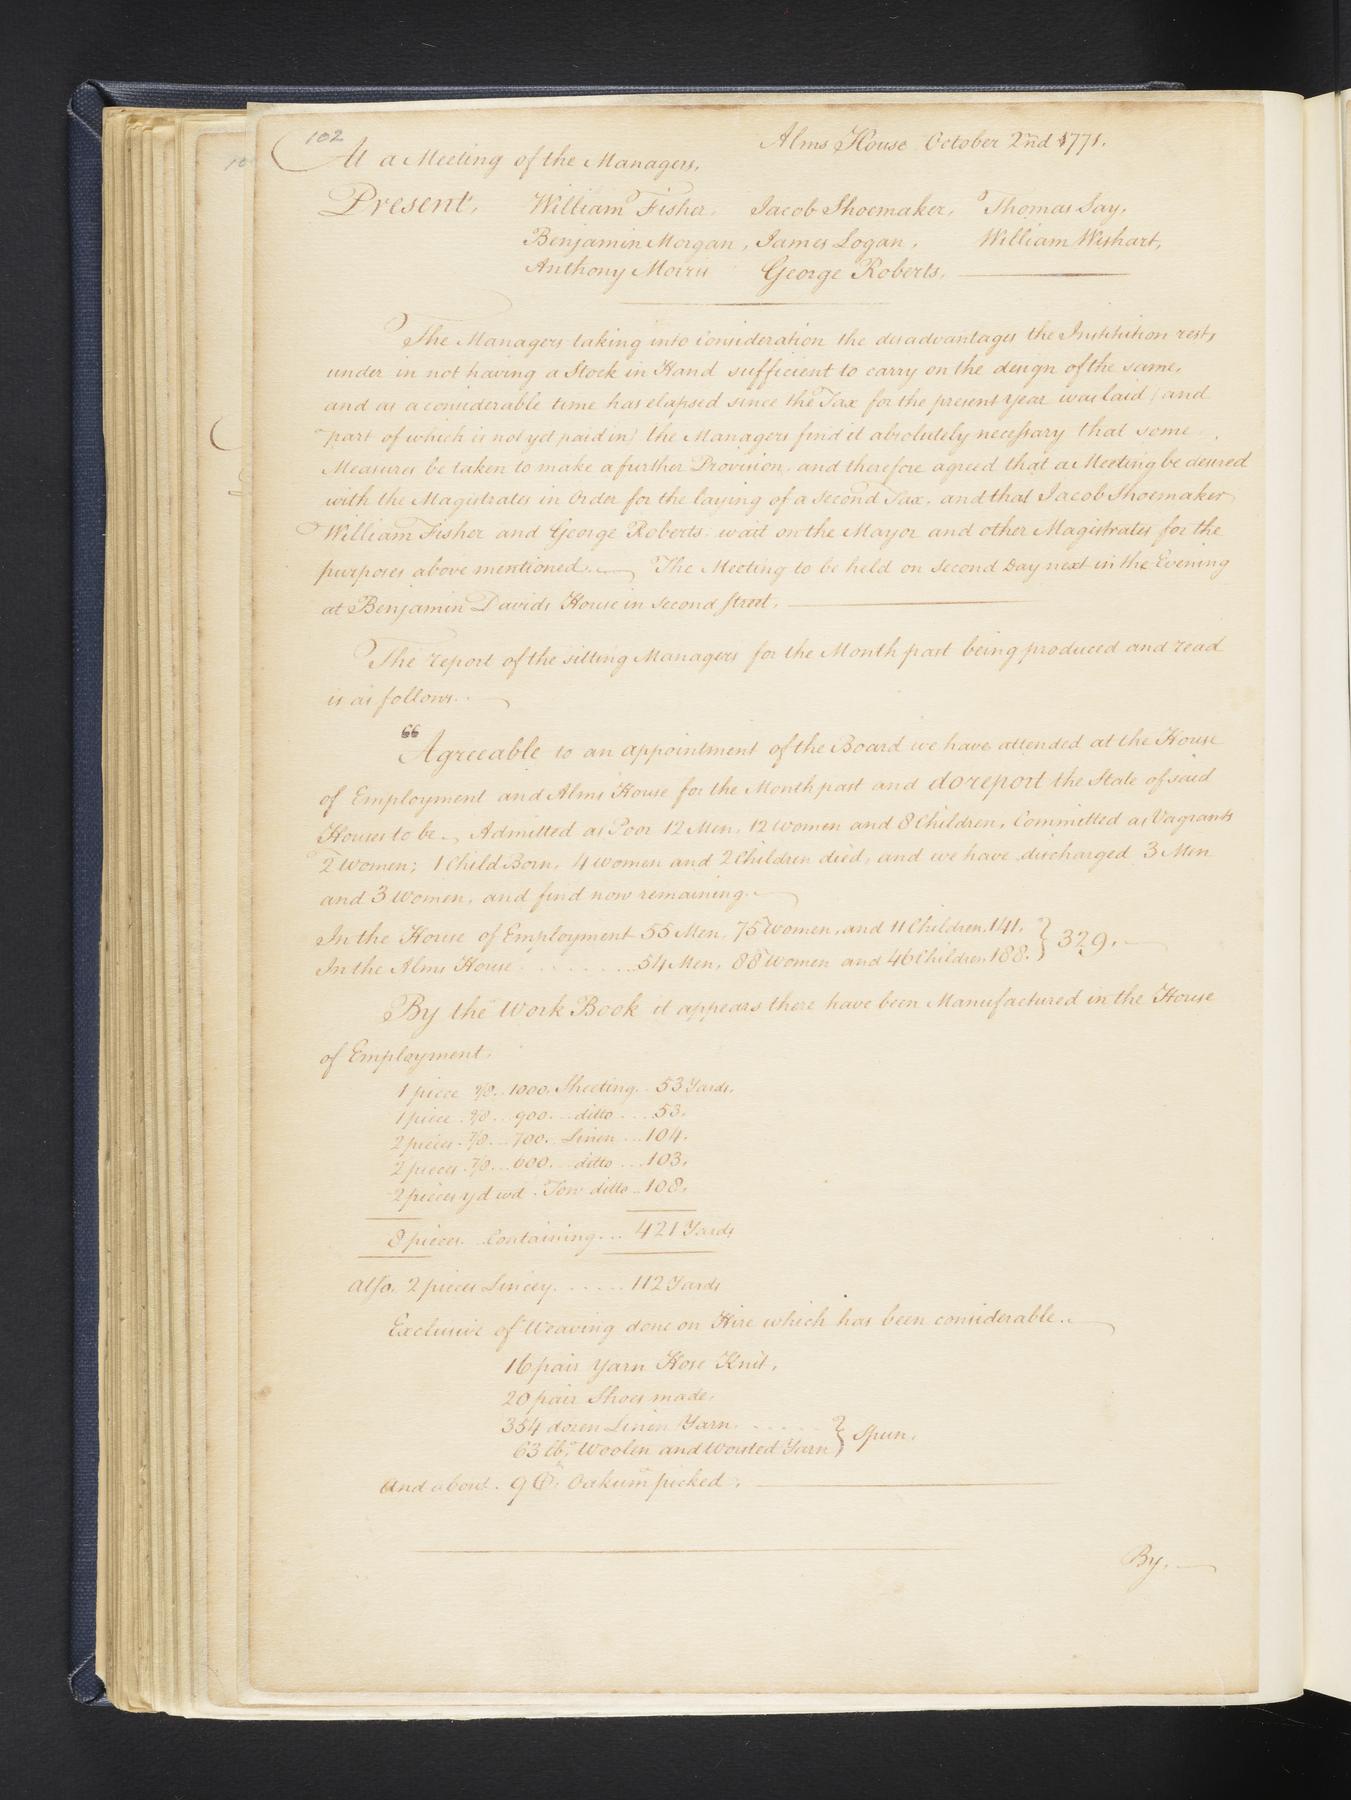 102
Alms House October 2nd 1771.
At a Meeting of the Managers,
Present, William Fisher, Jacob Shoemaker, Thomas Say,
Benjamin Morgan, James Logan, William Wishart,
Anthony Morris George Roberts,
The Managers taking into Consideration the disadvantages the Institution rests
under in not having a Stock in Hand sufficient to carry on the design of the same,
and as a considerable time has elapsed since the Tax for the present year was laid (and
part of which is not yet paid in) the Managers find it absolutely necessary that some
Measures be taken to make a further Provision, and therefore agreed that a Meeting be desired
with the Magistrates in Order for the laying of a Second Tax, and that Jacob Shoemaker
William Fisher and George Roberts wait on the Mayor and other Magistrates for the
purposes above mentioned. The Meeting to be held on Second Day next in the Evening
at Benjamin Davids House in Second Street.
The report of the sitting Managers for the Month past being produced and read
is as follows.
"Agreeable to an appointment of the Board we have attended at the House
of Employment and Alms House for the Month past and do report the State of said
Houses to be. Admitted as Poor 12 Men, 12 Women and 8 Children, Committed as Vagrants
2 Women; 1 Child Born, 4 Women and 2 Children died, and we have discharged 3 Men
and 3 Women, and find now remaining.
In the House of Employment 55 Men, 75 Women, and 11 Children. 141. } 329.
In the Alms House ........ 54 Men, 88 Women and 46 Children 188.
By the Work Book it appears there have been Manufactured in the House
of Employment.
1 piece 9/8.. 1000. Sheeting.. 53 Yards.
1 piece. 9/8... 900... ditto.... 53.
2 pieces. 7/8... 700. Linen... 104.
2 pieces. 7/8... 600... ditto... 103.
2 pieces yd wd. Tow ditto.. 108.
8 pieces. Containing... 421 Yards
Also, 2 pieces Lincey...... 112 Yards
Exclusive of Weaving done on Hire which has been considerable.
16 pair Yarn Hose Knit,
20 pair Shoes made,
354 dozen Linen Yarn....... } Spun.
63 lbs. Woolen and Worsted Yarn
And about. 9 Ct. Oakum picked.
By.